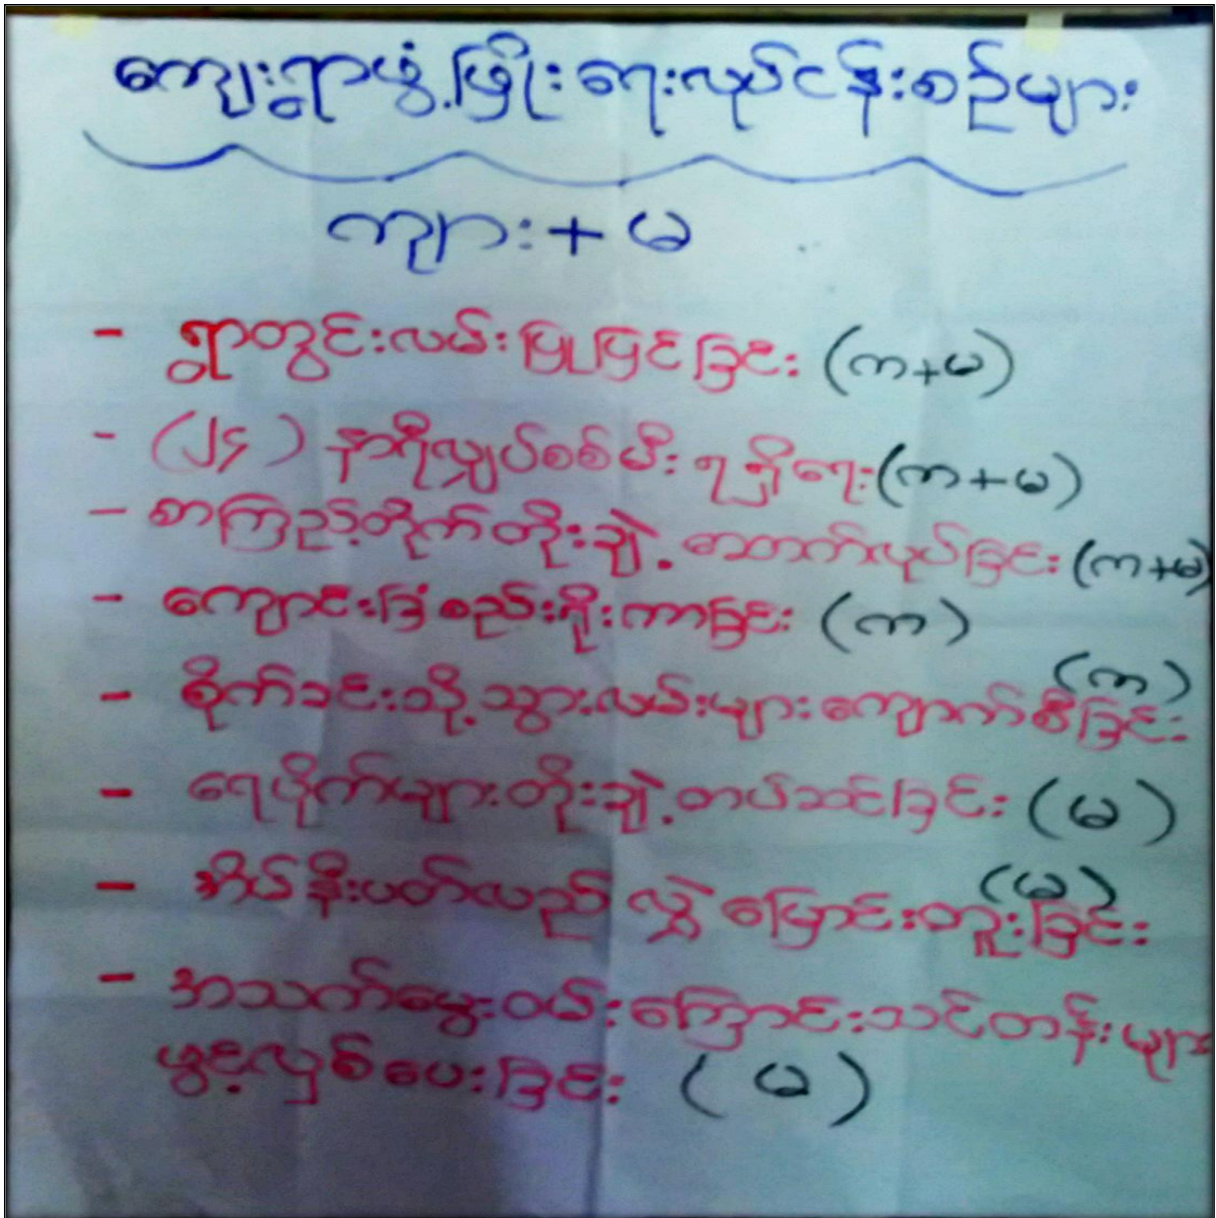 ကျေးရွာဖွံ့ဖြိုးရေးလုပ်ငန်းစဉ်များ
ကျား + မ
- ရွာတွင်းလမ်းပြုပြင်ခြင်း (က+မ)
- (၂၄) နာရီလျှပ်စစ်မီး ရရှိရေး (က+မ)
- စာကြည့်တိုက်တိုးချဲ့ဆောက်လုပ်ခြင်း (က+မ)
- ကျောင်းခြံစည်းရိုးကာခြင်း (က)
- စိုက်ခင်းသို့သွားလမ်းများကျောက်စီခြင်း (က)
- ရေပိုက်များတိုးချဲ့တပ်ဆင်ခြင်း (မ)
- အိမ်နီးပတ်လည် လွှဲပြောင်းတူးခြင်း (မ)
- အသက်မွေးဝမ်းကြောင်းသင်တန်းများ
ဖွင့်လှစ်ပေးခြင်း (မ)